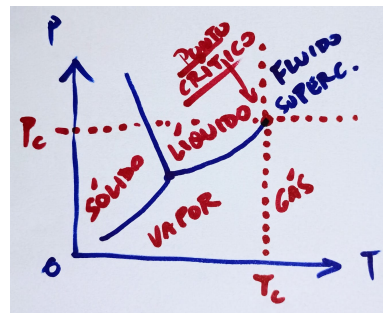 P
PUNTO
CRÍTICO
FLUIDO
SUPERC.
Pc
LÍQUIDO
SÓLIDO
VAPOR
GÁS
O
T
Tc